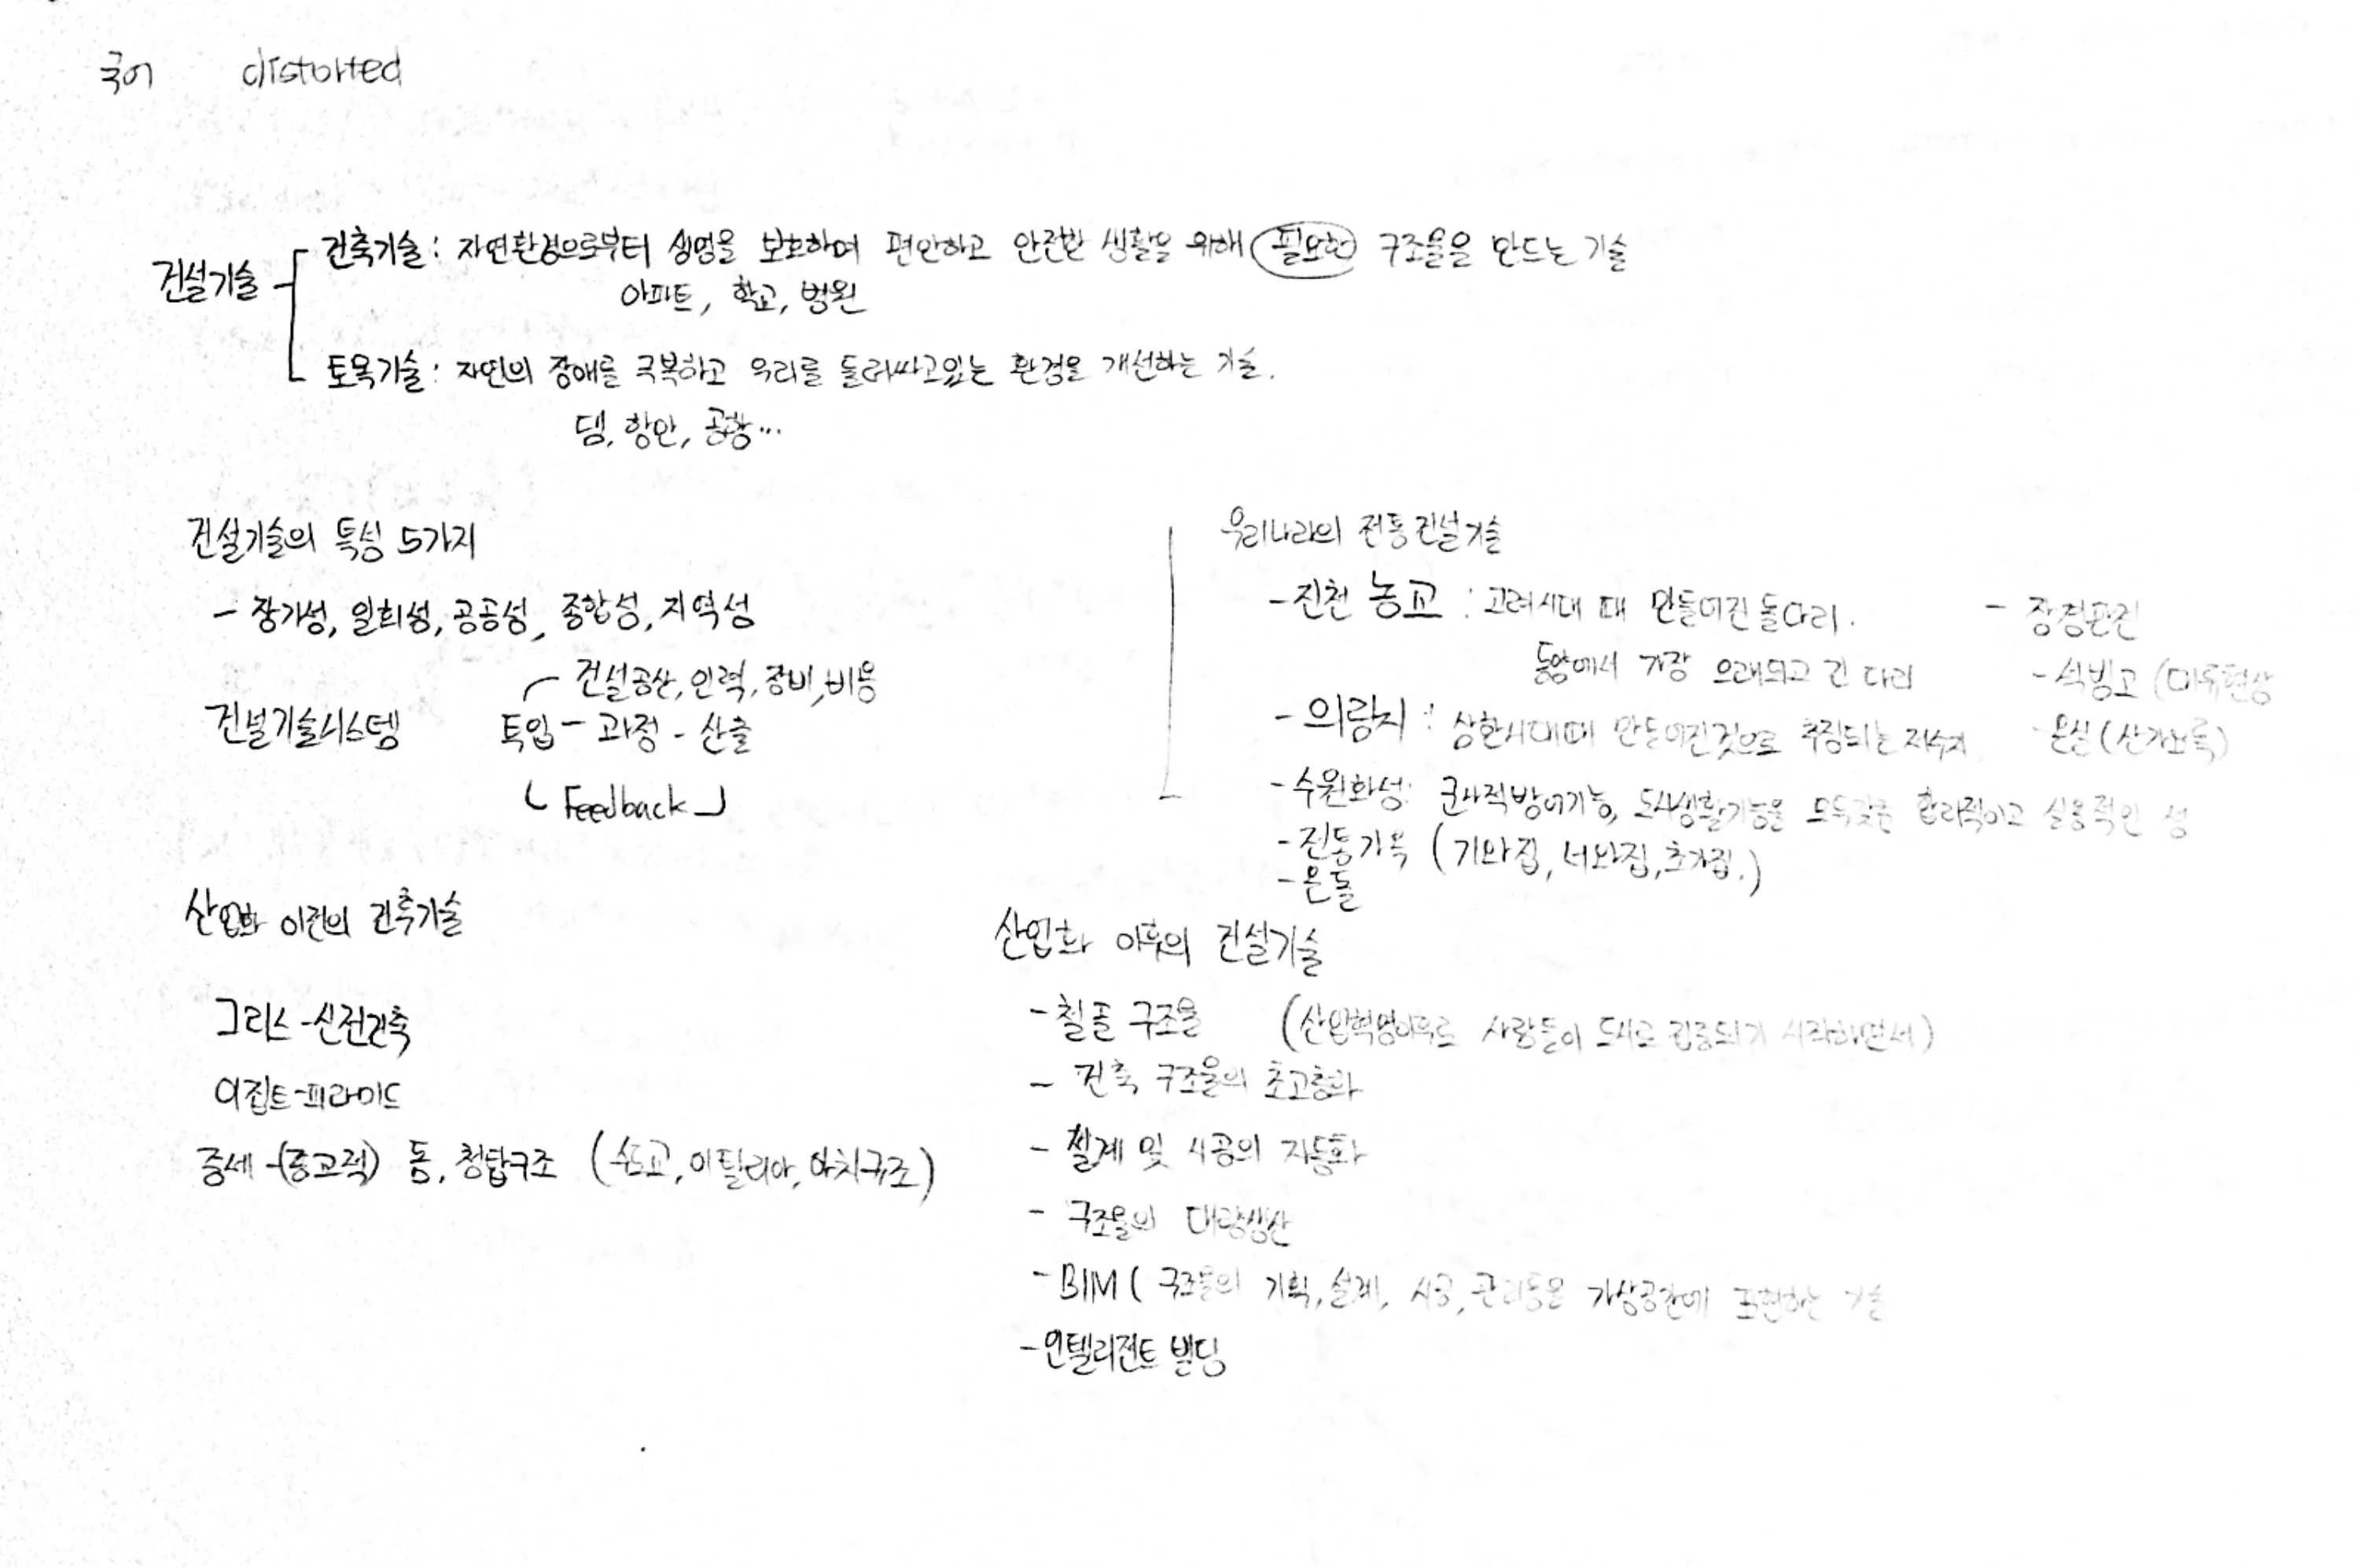 국어 distorted
건축기술 : 자연환경으로부터 생명을 보호하며 편안하고 안전한 생활을 위해 필요한 구조물을 만드는 기술
건설기술
아파트, 학교, 병원
토목기술 : 자연의 장애를 극복하고 우리를 둘러싸고있는 환경을 개선하는 기술.
댐, 항만, 공항...
건설기술의 특성 5가지
- 장기성, 일회성, 공공성, 종합성, 지역성
건설 인력, 장비, 비용
건설기술시스템 투입 - 과정 - 산출
Feedback
산업화 이전의 건축기술
그리스 - 신전건축
이집트 - 피라미드
중세 - (종교적) 돔, 첨탑구조 ( 이탈리아, 아치구조)
우리나라의 전통건설기술
- 진천 농교 : 고려시대 때 만들어진 돌다리.
동양에서 가장 오래되고 긴 다리
- 의림지 : 삼한시대때 만들어진것으로 추정되는 저수지
- 수원화성: 군사적방어기능, 도시생활기능을 모두갖춘 합리적이고 실용적인 성
- 전통가옥 (기와집, 너와집, 초가집.)
- 온돌
- 장경판전
- 석빙고 (대류현상
- 온실 (산가요록)
산업화 이후의 건설기술
- 철골 구조물 (산업혁명이후로 사람들이 도시로 집중되기 시작하면서)
- 건축 구조물의 초고층화
- 설계 및 시공의 자동화
- 구조물의 대량생산
- BIM ( 구조물의 기획, 설계, 시공, 관리등을 가상공간에 표현하는 기술
- 인텔리전트 빌딩